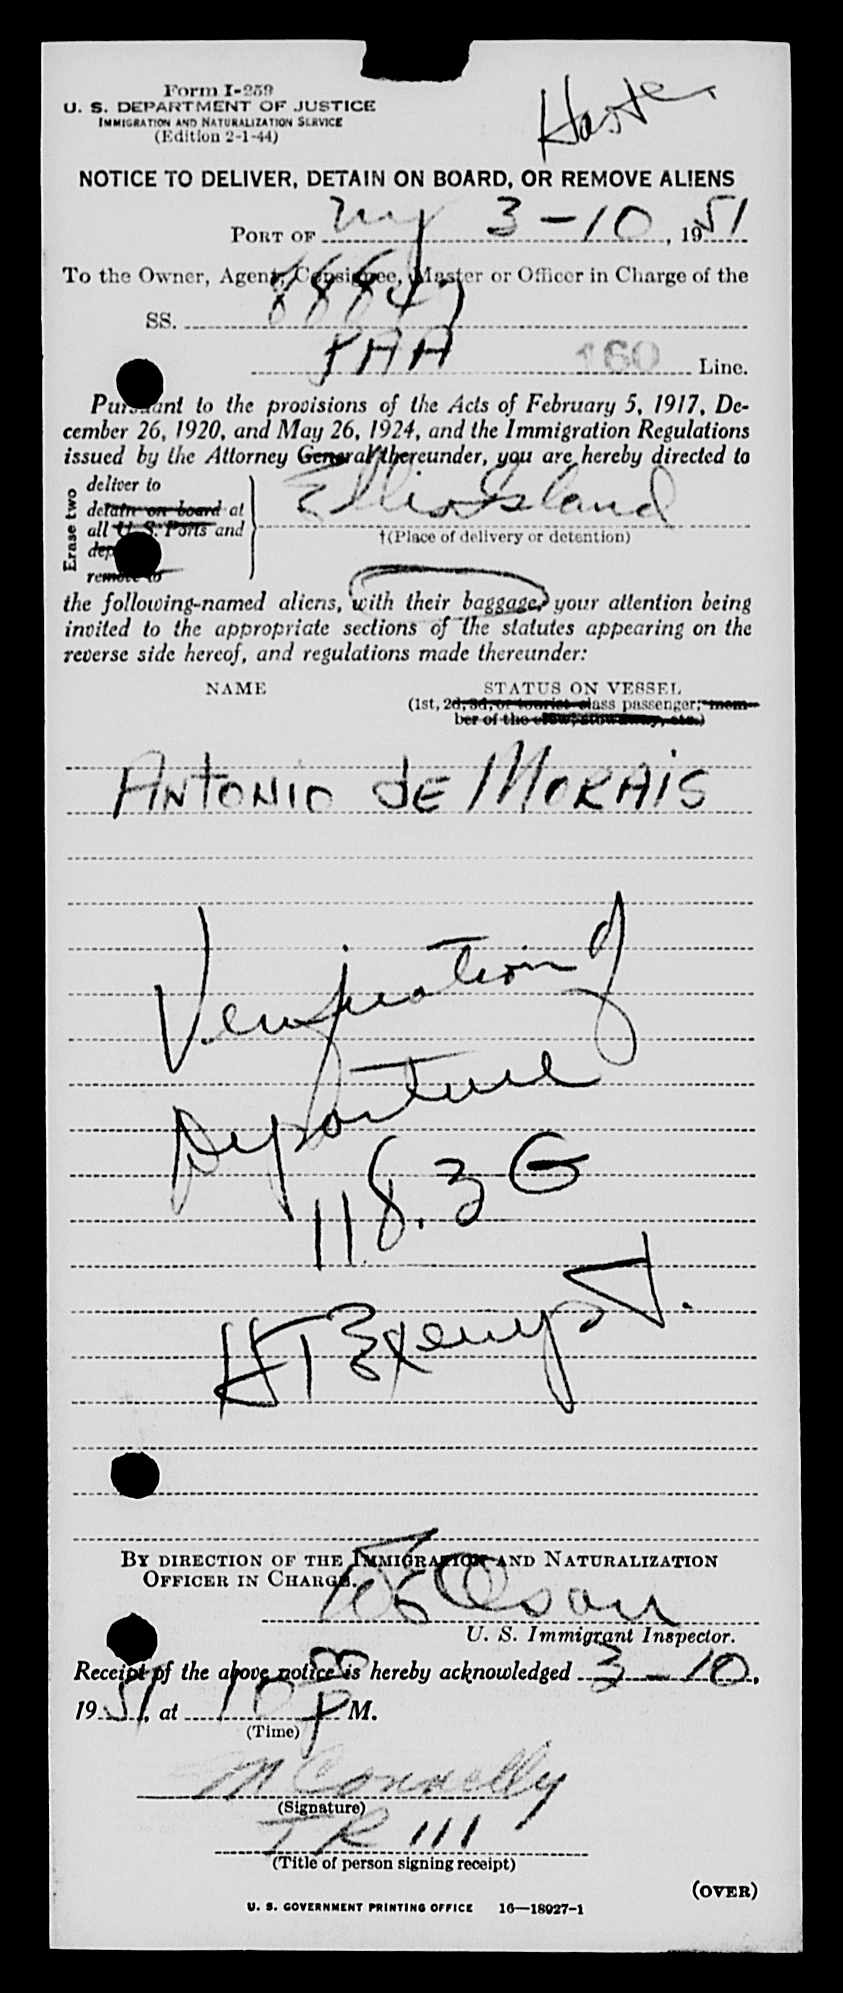 Form I-259
U. S. DEPARTMENT OF JUSTICE
IMMIGRATION AND NATURALIZATION SERVICE
(Edition 2-1-44)
NOTICE TO DELIVER, DETAIN ON BOARD, OR REMOVE ALIENS
PORT OF NY 3-10, 1951
To the Owner, Agent, Consignee, Master or Officer in Charge of the
SS. 88847
PAA 160 Line.
Pursuant to the provisions of the Acts of February 5, 1917, De-
cember 26, 1920, and May 26, 1924, and the Immigration Regulations
issued by the Attorney General thereunder, you are hereby directed to
Erase two
deliver to
detain on board at
all U. S. Ports and
remove to
Ellis Island
†(Place of delivery or detention)
the following-named aliens, with their baggage, your attention being
invited to the appropriate sections of the statutes appearing on the
reverse side hereof, and regulations made thereunder:
NAME STATUS ON VESSEL
(1st, 2d, 3d, or tourist class passenger; mem-
ber of the crew, stowaway, etc.)
ANTONIO dE MORAIS
Verification of
Departure
118.3 G
HT Exempt.
BY DIRECTION OF THE IMMIGRATION AND NATURALIZATION
OFFICER IN CHARGE.
U. S. Immigrant Inspector.
Receipt of the above notice is hereby acknowledged 3-10,
1951, at 10 00 P M.
(Time)
M Connelly
(Signature)
TR 111
(Title of person signing receipt)
(OVER)
U. S. GOVERNMENT PRINTING OFFICE 16—18927-1